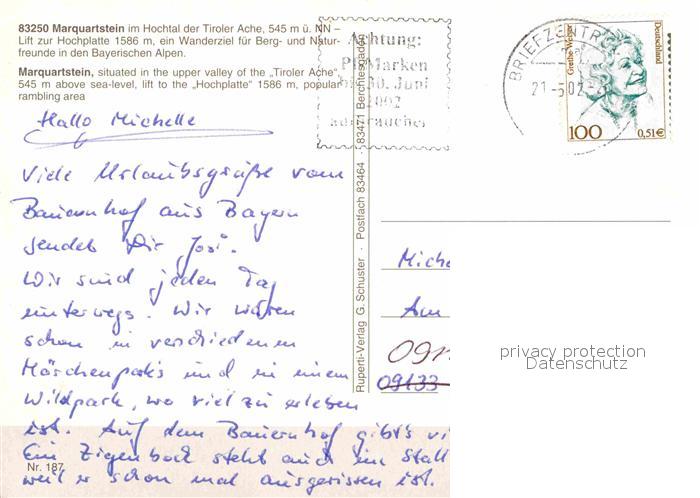 83250 Marquartstein im Hochtal der Tiroler Ache, 545 m ü. NN –
Lift zur Hochplatte 1586 m, ein Wanderziel für Berg- und Natur-
freunde in den Bayerischen Alpen.
Marquartstein, situated in the upper valley of the „Tiroler Ache“,
545 m above sea-level, lift to the „Hochplatte“ 1586 m, popular
rambling area
Hallo Michelle
Viele Urlaubsgrüße vom
Bauernhof aus Bayern
sendet Dir Josi.
Wir sind jeden Tag
unterwegs. Wir waren
schon in verschiedenen
Märchenparks und in einem
Wildpark, wo viel zu erleben
ist. Auf dem Bauernhof gibt's vi
Ein Zigenbock steht auch im Stall
weil er schon mal ausgerissen ist.
Nr. 187
Ruperti-Verlag G. Schuster · Postfach 83464 · 83471 Berchtesgaden
Achtung:
Pf-Marken
bis 30. Juni
2002
aufbrauchen
BRIEFZENTR
21-5.02
Grethe Weiser
Deutschland
100
0,51€
Miche
Am
091
09133
privacy protection
Datenschutz